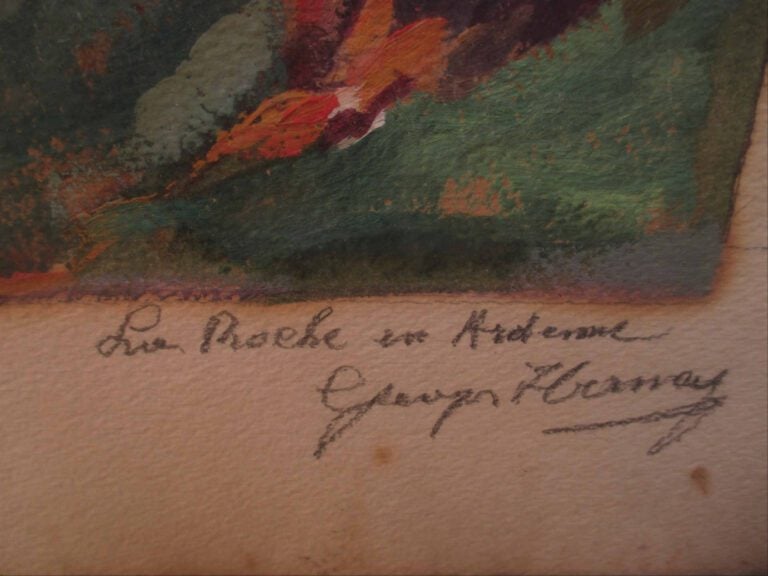 La Roche en Ardenne
Georges